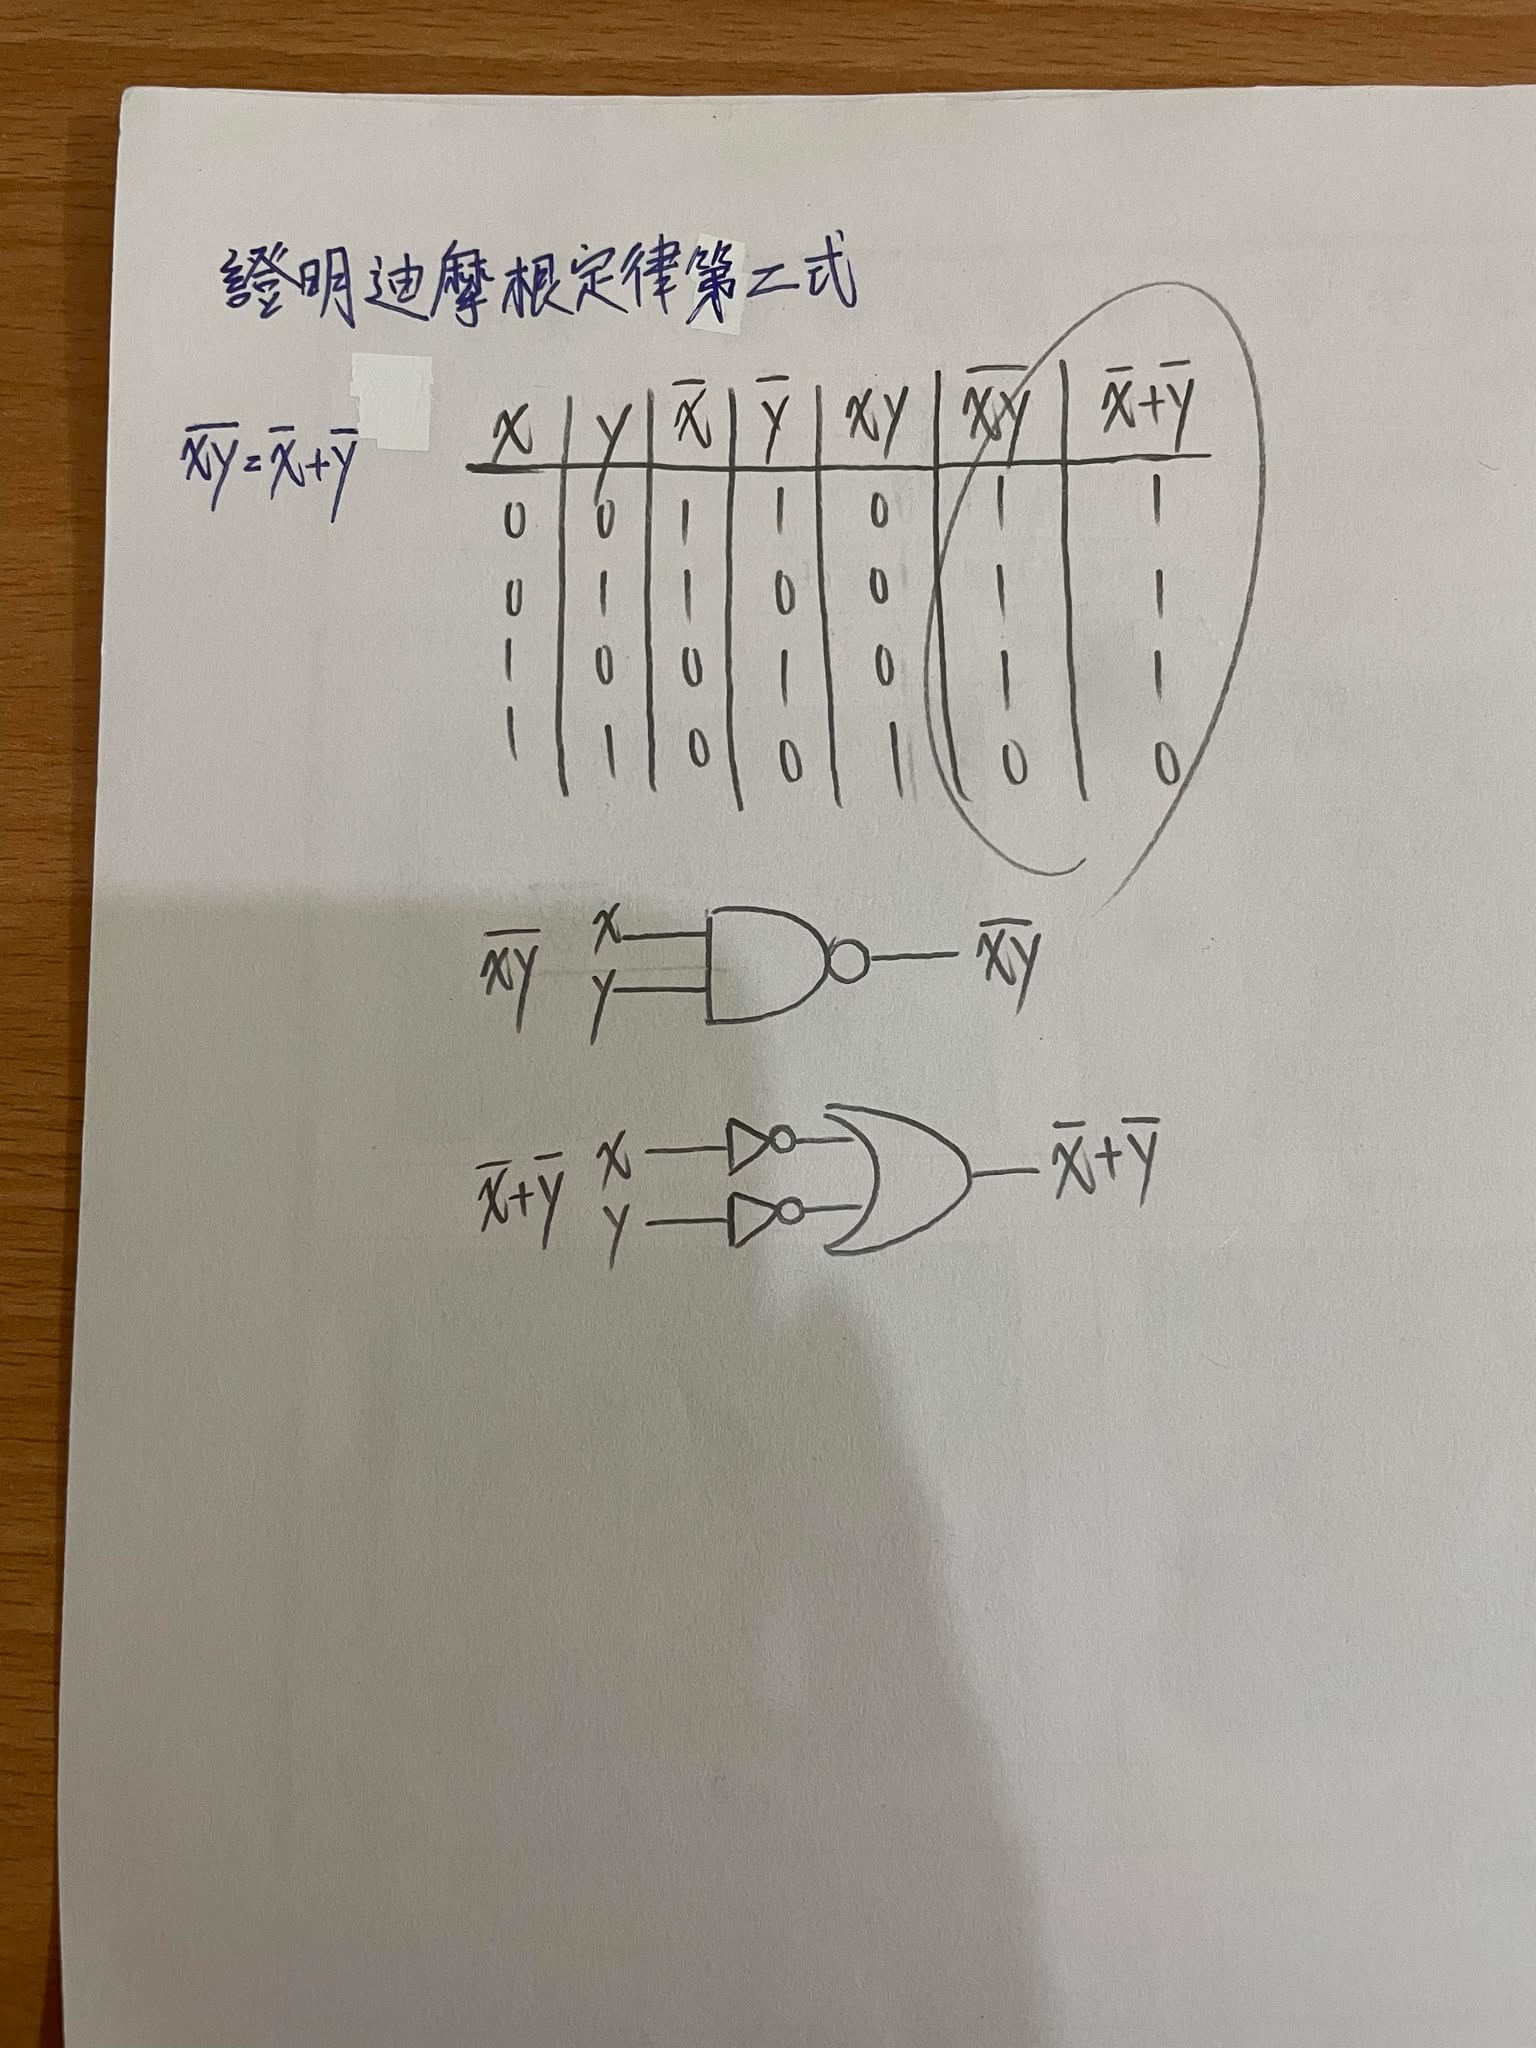 證明迪摩根定律第二式
x̅y̅=x̅+y̅
x y x̅ y̅ xy x̅y̅ x̅+y̅
0 0 1 1 0 1 1
0 1 1 0 0 1 1
1 0 0 1 0 1 1
1 1 0 0 1 0 0
x̅y̅ x x̅y̅
y
x̅+y̅ x x̅+y̅
y